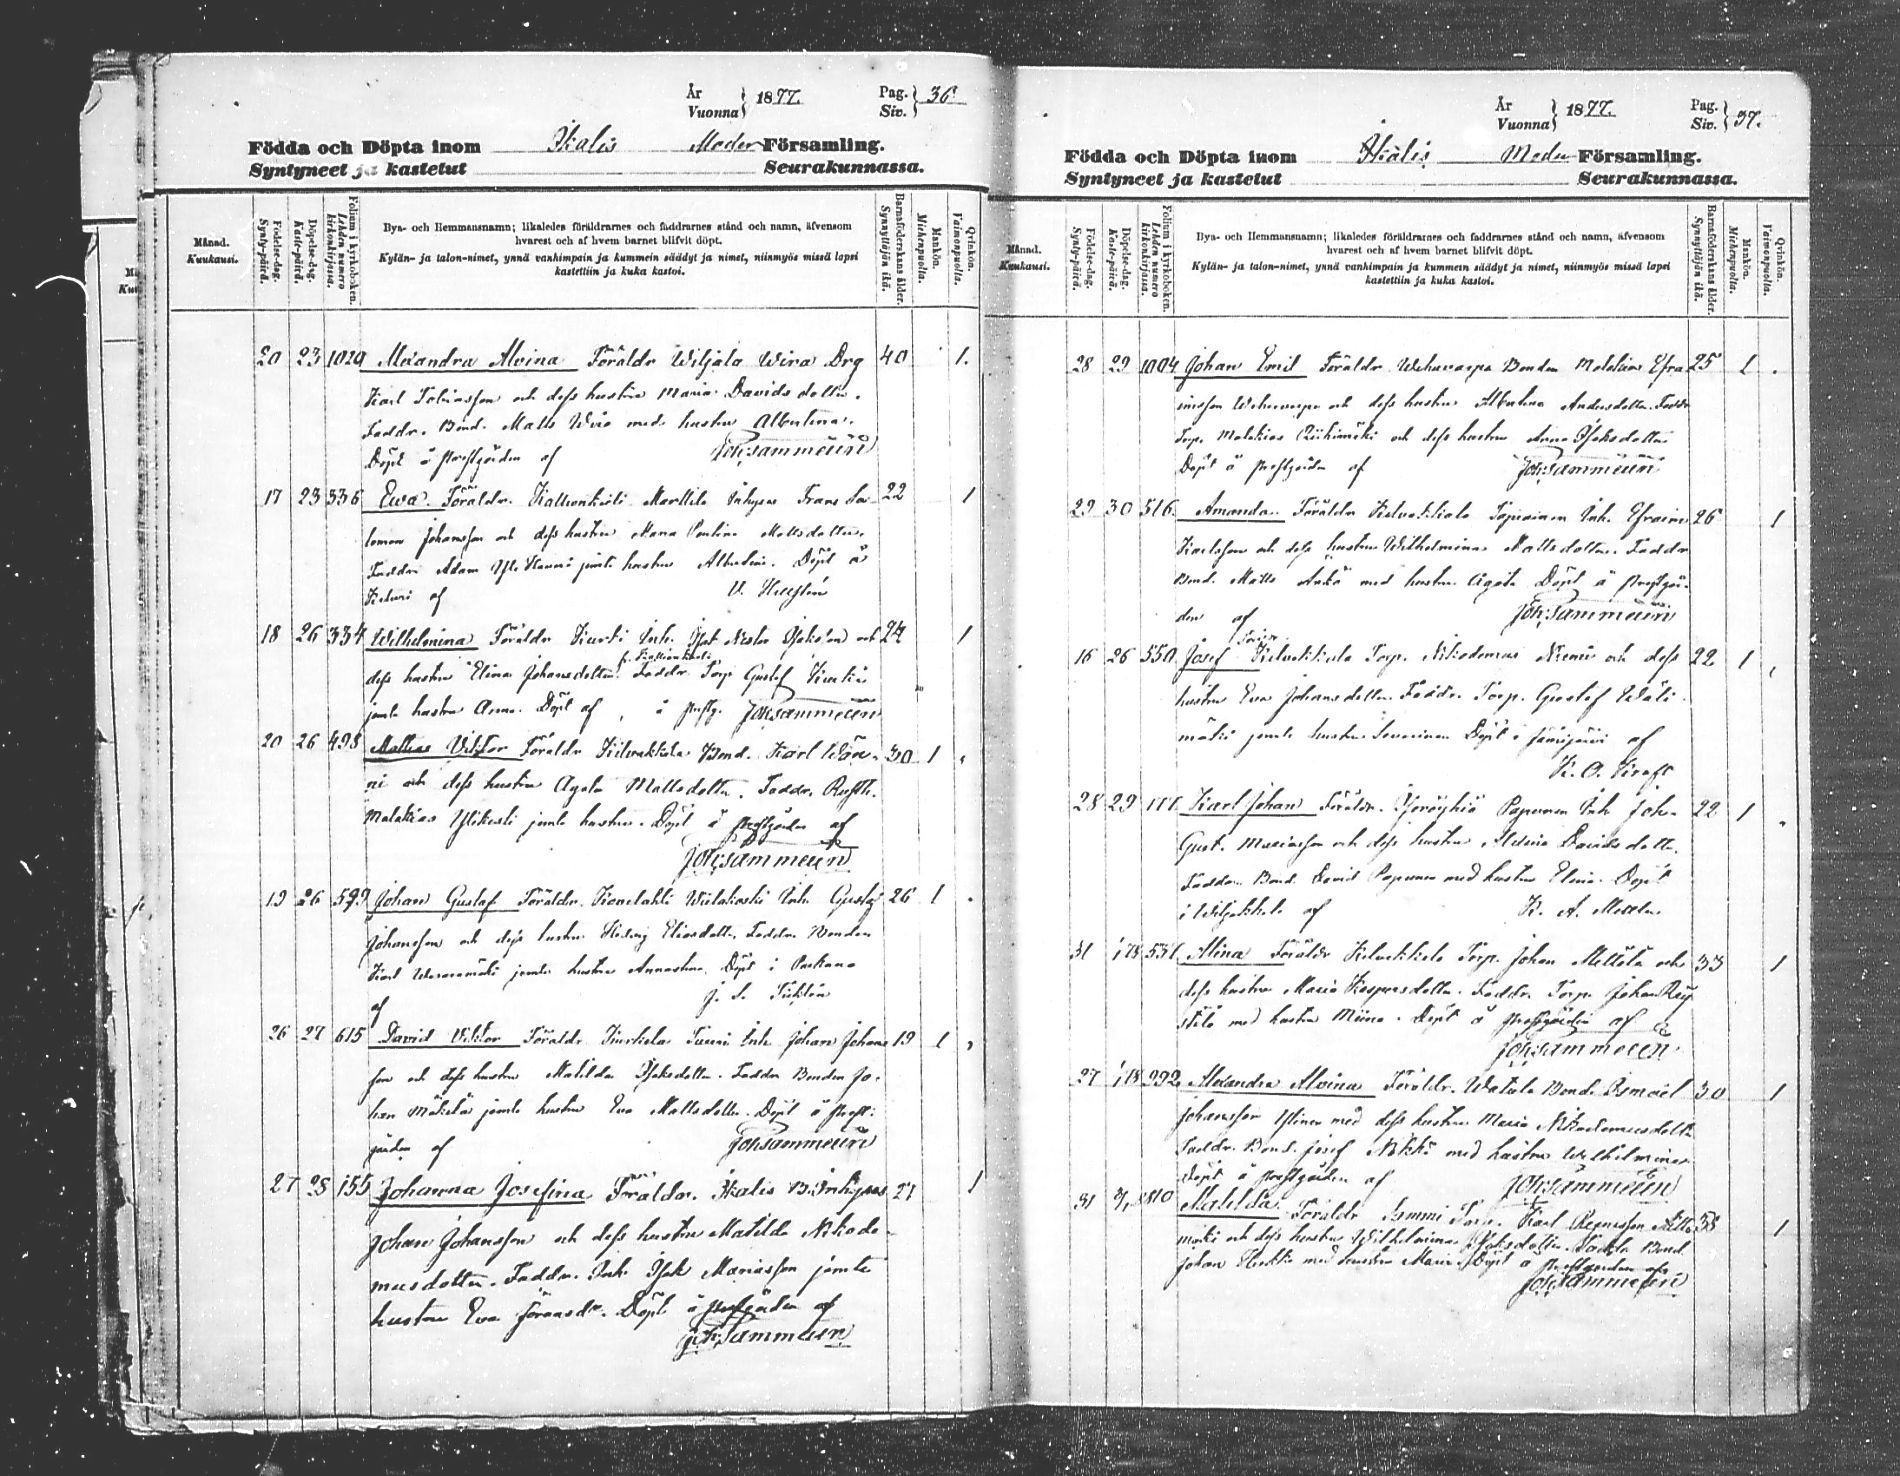 År
Vuonna } 1877. Pag. Siv. } 36.
Födda och Döpta inom Ikalis Moder Församling.
Syntyneet ja kastetut Seurakunnassa.
Månad. Kuukausi.
Födelse-dag. Synty-päivä.
Döpelse-dag. Kaste-päivä.
Folium i kyrkoboken. Lehden numero kirkonkirjassa.
Bya- och Hemmansnamn; likaledes föräldrarnes och faddrarnes stånd och namn, äfvensom
hvarest och af hvem barnet blifvit döpt.
Kylän- ja talon-nimet, ynnä vanhimpain ja kummein säädyt ja nimet, niinmyös missä lapsi
kastettiin ja kuka kastoi.
Barnaföderskans ålder. Synnyttäjän ikä.
Mankön. Miehenpuolta.
Qvinkön. Vaimonpuolta.
20 23 1029 Alexandra Alvina Föräldr Wiljala Wira Drg 40 1.
Karl Tobiasson och dess hustru Maria Davidsdotter.
Faddr. Bond. Matts Wira med hustru Albertina.
Döpt å prestgården af Joh: Sammeun
17 23 336 Ewa Föräldr. Kallionkieli Marttila Inhyses Frans Sa 22 1
lomon Johansson och dess hustru Maria Paulina Mattsdotter.
Faddr. Adam jemte hustru Albertina. Döpt å
af
18 26 334 Wilhelmina Föräldr Kurki Inh. Isak Nestor Isaksson och 24 1
dess hustru Elina Johansdotter. Faddr Torp Gustaf Kurki
jemte hustru Anna. Döpt af å prestg. Joh: Sammeun
20 26 498 Mathias Viktor Föräldr Kilvakkala Bond. Karl 30 1
ni och dess hustru Agata Mattsdotter. Faddr. Rusth.
Malakias Ylikesti jemte hustru. Döpt å prestgården af
Joh: Sammeun
19 26 599 Johan Gustaf Föräldr. Inh. Gustaf 26 1
Johansson och dess hustru Hedvig Eliasdotter. Faddr. Bonden
Karl jemte hustru Annastina. Döpt i Parkano
af
26 27 615 David Viktor Föräldr Kurkela Inh. Johan Johans 19 1
son och dess hustru Matilda Isaksdotter. Faddr Bonden Jo-
han Mäkelä jemte hustru Eva Mattsdotter. Döpt å prest-
gården af Joh: Sammeun
27 28 155 Johanna Josefina Föräldr. Ikalis B. Inhyses 27 1
Johan Johansson och dess hustru Matilda Nikode
musdotter. Faddr. Inh. Isak Mariasson jemte
hustru Eva Göransdr. Döpt å prestgården af
Joh: Sammeun
År
Vuonna } 1877. Pag. Siv. } 37.
Födda och Döpta inom Ikalis Moder Församling.
Syntyneet ja kastetut Seurakunnassa.
Månad. Kuukausi.
Födelse-dag. Synty-päivä.
Döpelse-dag. Kaste-päivä.
Folium i kyrkoboken. Lehden numero kirkonkirjassa.
Bya- och Hemmansnamn; likaledes föräldrarnes och faddrarnes stånd och namn, äfvensom
hvarest och af hvem barnet blifvit döpt.
Kylän- ja talon-nimet, ynnä vanhimpain ja kummein säädyt ja nimet, niinmyös missä lapsi
kastettiin ja kuka kastoi.
Barnaföderskans ålder. Synnyttäjän ikä.
Mankön. Miehenpuolta.
Qvinkön. Vaimonpuolta.
28 29 1004 Johan Emil Föräldr Wehuvarpe Bonden Malakias Efra 25 1
imsson Wehuvarpe och dess hustru Albertina Andersdotter. Faddr
Torp. Malakias och dess hustru Anna Isaksdotter
Döpt å prestgården af Joh: Sammeun
29 30 516. Amanda. Föräldr Kilvakkala Inh. Efraim 26 1
Karlsson och dess hustru Wilhelmina Mattsdotter. Faddr
Bond. Matts med hustru Agata Döpt å prestgår-
den af Joh: Sammeun
16 26 550 Josef Kilvakkala Torp. Nikodemus Niemi och dess 22 1
hustru Eva Johansdotter. Faddr. Torp. Gustaf Wäli-
mäki jemte hustru Severina Döpt i Jämijärvi af
K. O. Kraft
28 29 177. Karl Johan Föräldr. Inh. Joh. 22 1
Gust. Mariasson och dess hustru Davidsdotter.
Faddr. Bond. David Papunen med hustru Elina. Döpt
i Wiljakkala af K. A.
31 1/78 531 Alina Föräldr Kilvakkala Torp. Johan Mettälä och 33 1
dess hustru Maria Kaspersdotter. Faddr. Torp. Johan
med hustru Miina. Döpt å prestgården af
Joh: Sammeun
27 1/78 992 Alexandra Alvina Föräldr. Watula Bond. Ismael 30 1
Johansson Ylinen med dess hustru Maria Nikodemusdotter
Faddr. Bond. Josef med hustru Wilhelmina
Döpt å prestgården af Joh: Sammeun
31 810 Matilda Föräldr Torp. Karl 38 1
mäki och dess hustru Wilhelmina Isaksdotter. Faddr Bond
Johan med hustru Maria. Döpt å prestgården af
Joh: Sammeun